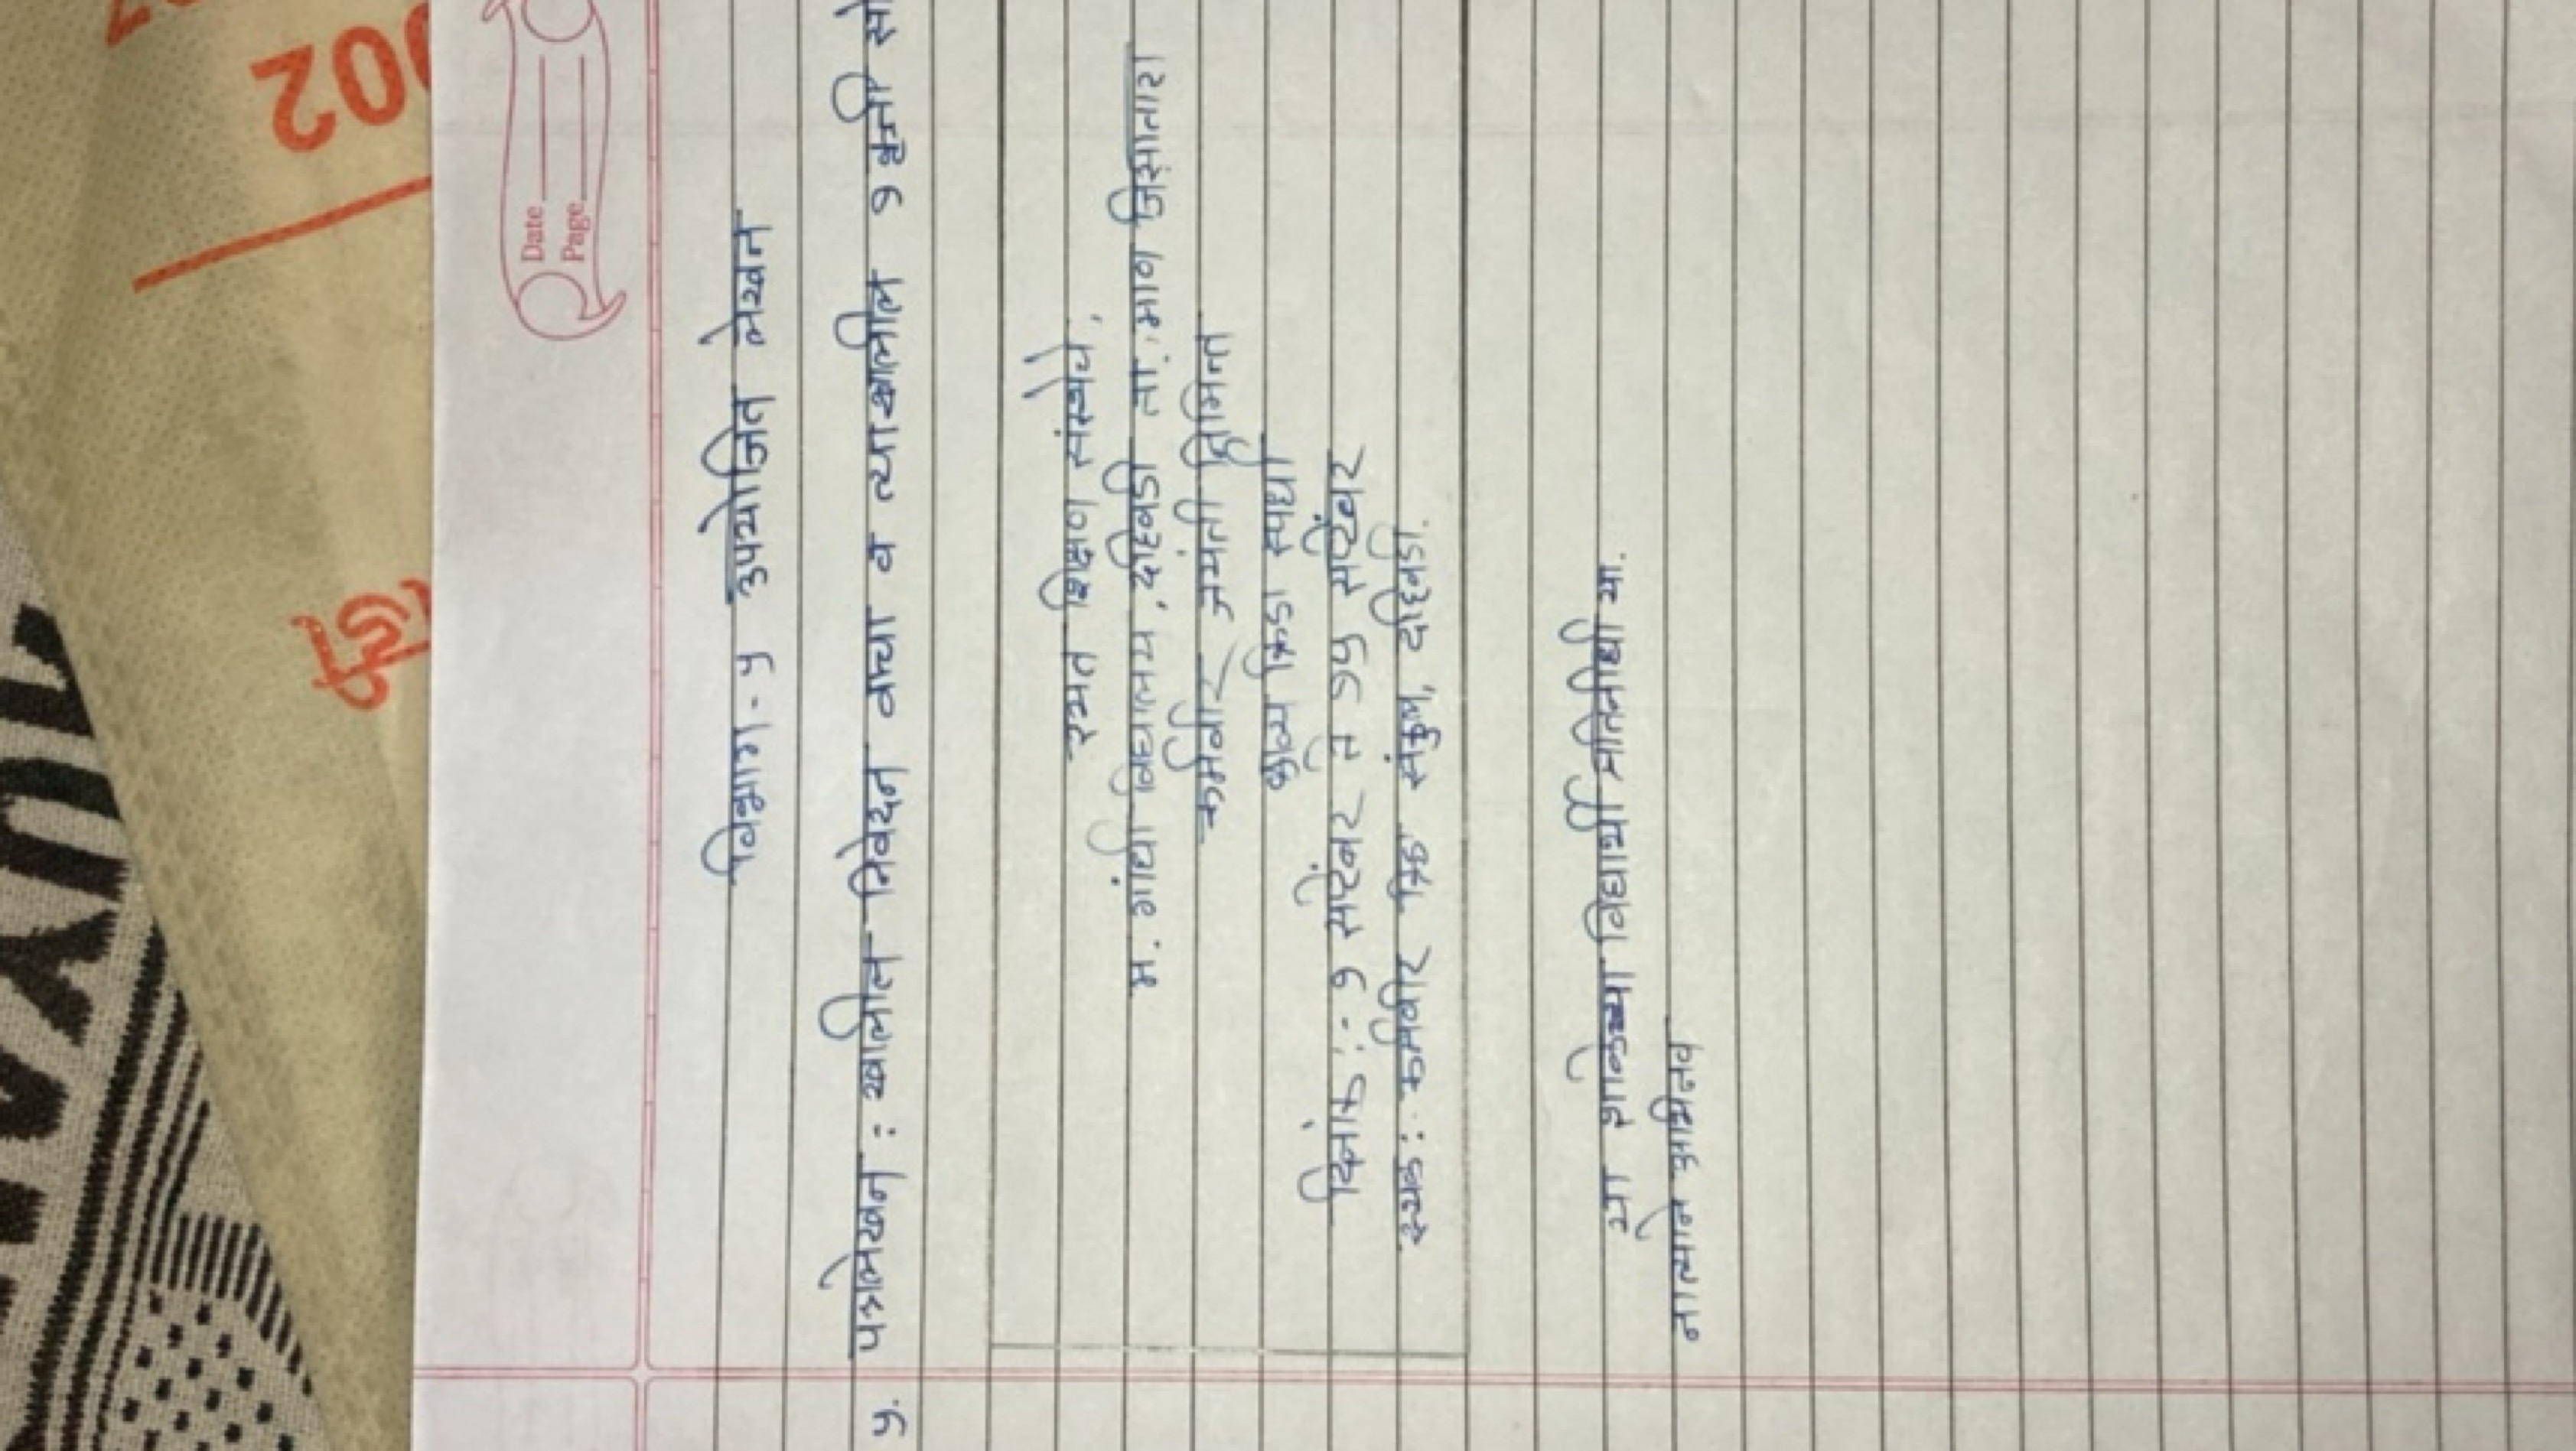 Date
Page
विभाग - ५ उपयोजित लेखन
५. पत्रलेखन : खालील निवेदन वाचा व त्याखालील १ कृती सो
रयत शिक्षण संस्थेचे,
म. गांधी विद्यालय, दहिवडी ता. माण जि.सातारा
कर्मवीर जयंती निमित्त
भव्य क्रिडा स्पर्धा
दिनांक :- १ सप्टेंबर ते ३५ सप्टेंबर
स्थळ : कर्मवीर क्रिडा संकुल, दहिवडी.
या शाळेच्या विद्यार्थी प्रतिनिधी या.
नात्याने
002